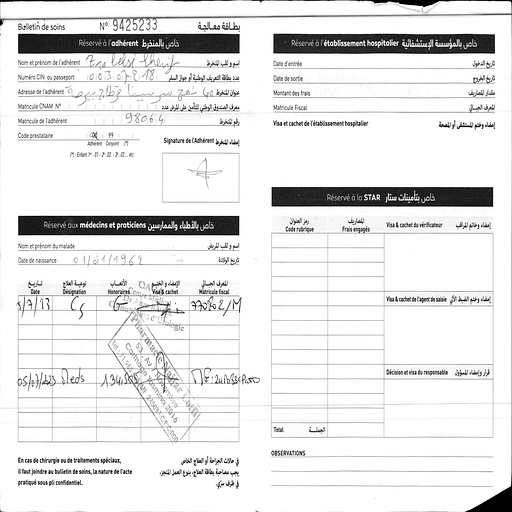 Bulletin de soins N° 9425233 بطاقة معالجة
Réservé à l'adhérent خاص بالمنخرط
Nom et prénom de l'adhérent اسم و لقب المنخرط
Numéro CIN ou passeport عدد بطاقة التعريف الوطنية أو جواز السفر
Adresse de l'adhérent عنوان المنخرط
Matricule CNAM N° معرف الصندوق الوطني للتأمين على المرض عدد
Matricule de l'adhérent 98064 رقم المنخرط
Code prestataire 99
Adhérent Conjoint (*)
(*) : Enfant 1er : 01 - 2e : 02 - 3e : 03 ... etc
Signature de l'Adhérent إمضاء المنخرط
Réservé aux médecins et praticiens خاص بالأطباء والممارسين
Nom et prénom du malade اسم و لقب المريض
Date de naissance 01/01/1969 تاريخ الولادة
تاريخ نوعية العلاج الأتعاب الإمضاء و الختم المعرف الجبائي
Date Désignation Honoraires Visa & cachet Matricule fiscal
5/7/23 Cs
Pharmacie
05/07/2023 Meds
En cas de chirurgie ou de traitements spéciaux,
il faut joindre au bulletin de soins, la nature de l'acte
pratiqué sous pli confidentiel.
في حالات الجراحة أو العلاج الخاص
يجب مصاحبة بطاقة العلاج، بنوع العمل المنجز،
في ظرف سري.
Réservé à l'établissement hospitalier خاص بالمؤسسة الإستشفائية
Date d'entrée تاريخ الدخول
Date de sortie تاريخ الخروج
Montant des frais مقدار المصاريف
Matricule Fiscal المعرف الجبائي
Visa et cachet de l'établissement hospitalier إمضاء وختم المستشفى أو المصحة
Réservé à la STAR خاص بتأمينات ستار
رمز العنوان المصاريف
Code rubrique Frais engagés Visa & cachet du vérificateur إمضاء وخاتم المراقب
Visa & cachet de l'agent de saisie إمضاء وختم الضبط الآلي
Décision et visa du responsable قرار وإمضاء المسؤول
Total الجملة
OBSERVATIONS